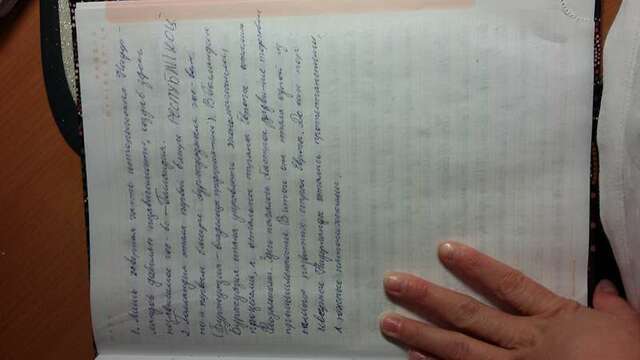 1. Лишь северная часть исторических Нидер-
ландов давилась независимости, создав здесь
независимое гос-во - Голландия.
2. Голландия стала первой в мире РЕСПУБЛИКОЙ
и первым в мире буржуазным гос-вом
(Буржуазия - владельцы предприятий). В Голландии
Буржуазия стала управлять экономическими
процессами, а остальные страны Европы
Феодалами. Здесь началось быстрое развитие торговли
промышленности. В итоге она стала одной из
самых развитых стран Европы. До сих пор
северные Нидерланды остались протестантскими,
а южные католическими.